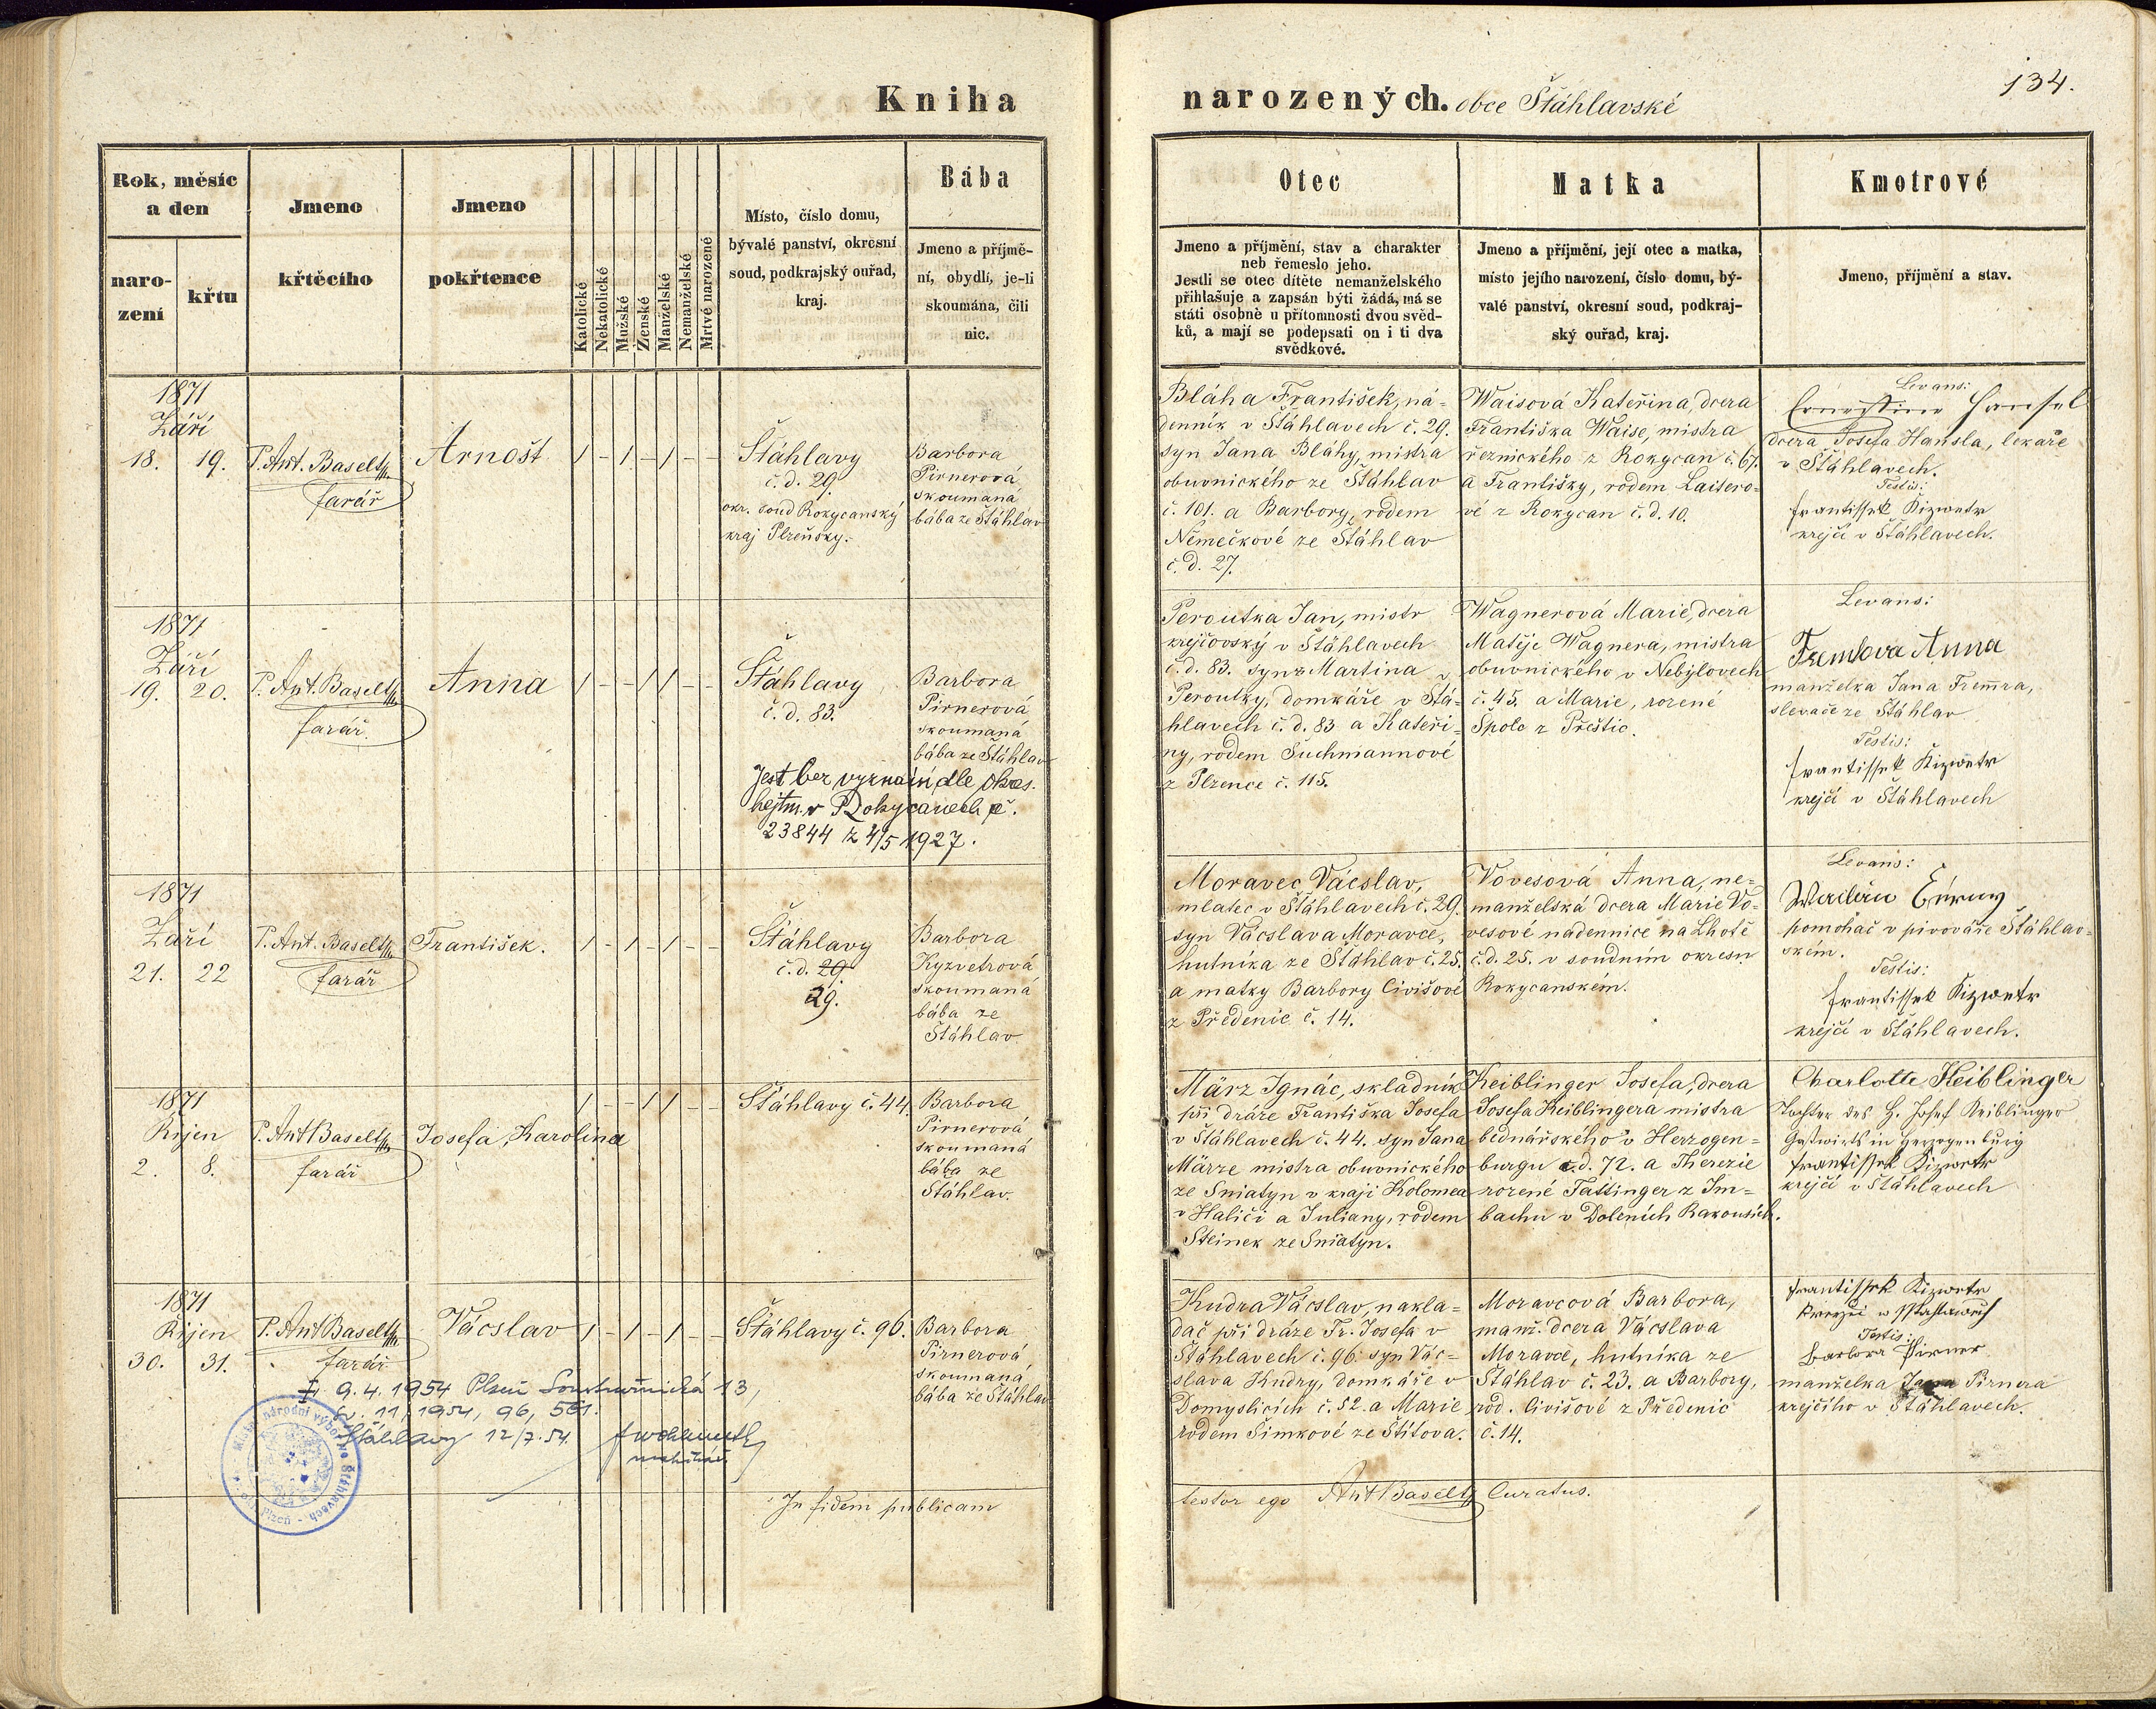 Kniha
narozených. obce Šťáhlavské
134.
Rok, měsíc
a den
naro-
zení
křtu
Jmeno
křtěcího
Jmeno
pokřtence
Katolické
Nekatolické
Mužské
Ženské
Manželské
Nemanželské
Mrtvě narozené
Místo, číslo domu,
bývalé panství, okresní
soud, podkrajský ouřad,
kraj.
Bába
Jmeno a příjmě-
ní, obydlí, je-li
skoumána, čili
nic.
Otec
Jmeno a příjmění, stav a charakter
neb řemeslo jeho.
Jestli se otec dítěte nemanželského
přihlašuje a zapsán býti žádá, má se
státi osobně u přítomnosti dvou svěd-
ků, a mají se podepsati on i ti dva
svědkové.
Matka
Jmeno a příjmění, její otec a matka,
místo jejího narození, číslo domu, bý-
valé panství, okresní soud, podkraj-
ský ouřad, kraj.
Kmotrové
Jmeno, příjmění a stav.
1871
Září
18. 19.
P. Ant. Baselt
farář
Arnošt
/ - / - / - -
Šťáhlavy
č. d. 29.
okr. soud Rokycanský
kraj Plzeňský.
Barbora
Pirnerová
skoumaná
bába ze Šťáhlav
Bláha František, ná-
denník v Šťáhlavech č. 29.
syn Jana Bláhy, mistra
obuvnického ze Šťáhlav
č. 101. a Barbory, rodem
Němečkové ze Šťáhlav
č. d. 27.
Waisová Kateřina, dcera
Františka Waise, mistra
řeznického z Rokycan č. 67.
a Františky, rodem Laitero-
vé z Rokycan č. d. 10.
Levans:
Ernestine Hansel
dcera Josefa Hansla, lékaře
v Šťáhlavech.
Testis:
Frantissek Kizwetr
krejčí v Šťáhlavech.
1871
Září
19. 20.
P. Ant. Baselt
farář.
Anna
/ - - / / - -
Šťáhlavy
č. d. 83.
Barbora
Pirnerová
skoumaná
bába ze Šťáhlav
Jest bez vyznání dle okres.
hejtm. v Rokycanech č.
23844 z 4/5 1927.
Peroutka Jan, mistr
krejčovský v Šťáhlavech
č. d. 83. syn z Martina
Peroutky, domkáře v Šťá-
hlavech č. d. 83 a Kateři-
ny, rodem Suchmannové
z Plzence č. 115.
Wagnerová Marie, dcera
Matěje Wagnera, mistra
obuvnického v Nebýlovech
č. 45. a Marie, rozené
Spolc z Přeštic.
Levans:
Fremrova Anna
manželka Jana Fremra,
slevače ze Šťáhlav
Testis:
Frantissek Kizwetr
krejčí v Šťáhlavech
1871
Září
21. 22
P. Ant. Baselt
farář
František.
/ - / - / - -
Šťáhlavy
č. d. 29.
29.
Barbora
Kyzvetrová
skoumaná
bába ze
Šťáhlav.
Moravec Vácslav,
mlatec v Šťáhlavech č. 29.
syn Vácslava Moravce,
hutníka ze Šťáhlav č. 25.
a matky Barbory Civišové
z Předenic č. 14.
Vovesová Anna, ne-
manželská dcera Marie Vo-
vesové nádennice na Lhotě
č. d. 25. v soudním okresu
Rokycanském.
Levans:
pomohač v pivováře Šťáhlav-
ském.
Testis:
Frantissek Kizwetr
krejčí v Šťáhlavech.
1871
Říjen
2. 8.
P. Ant Baselt
farář
Josefa, Karolina
/ - - / / - -
Šťáhlavy č. 44.
Barbora
Pirnerová
skoumaná
bába ze
Šťáhlav.
März Ignác, skladník
při dráze Františka Josefa
v Šťáhlavech č. 44. syn Jana
Märze mistra obuvnického
ze Sniatyn v kraji Kolomea
v Haliči a Juliany, rodem
Steinek ze Sniatyn.
Keiblinger Josefa, dcera
Josefa Keiblingera mistra
bednářského v Herzogen-
burgu č. d. 72. a Therezie
rozené Tattinger z Im-
bachu v Doleních Rakousích.
Charlotte Keiblinger
Tochter des H. Josef Keiblinger
Gastwirts in Herzogenburg
Frantissek Kizwetr
krejčí v Šťáhlavech
1871
Říjen
30. 31.
P. Ant Baselt
farář
Vácslav
/ - / - / - -
Šťáhlavy č. 96.
Barbora
Pirnerová
skoumaná
bába ze Šťáhlav
Kudra Vácslav, nakla-
dač při dráze Fr. Josefa v
Šťáhlavech č. 96. syn Vác-
slava Kudry, domkáře v
Domyslicích č. 52. a Marie
rodem Šimkové ze Štítova.
Moravcová Barbora,
manž. dcera Vácslava
Moravce, hutníka ze
Šťáhlav č. 23. a Barbory,
rod. Civišové z Předenic
č. 14.
Frantissek Kizwetr
Testis:
Barbora Pirner
manželka Jana Pirnera
krejčího v Šťáhlavech.
9. 4. 1954 Plzeň 13,
11/1954, 96, 561.
Šťáhlavy 12/7. 54.
národní výbor ve Šťáhlavech
Plzeň
In fidem publicam
testor ego Ant Baselt Curatus.